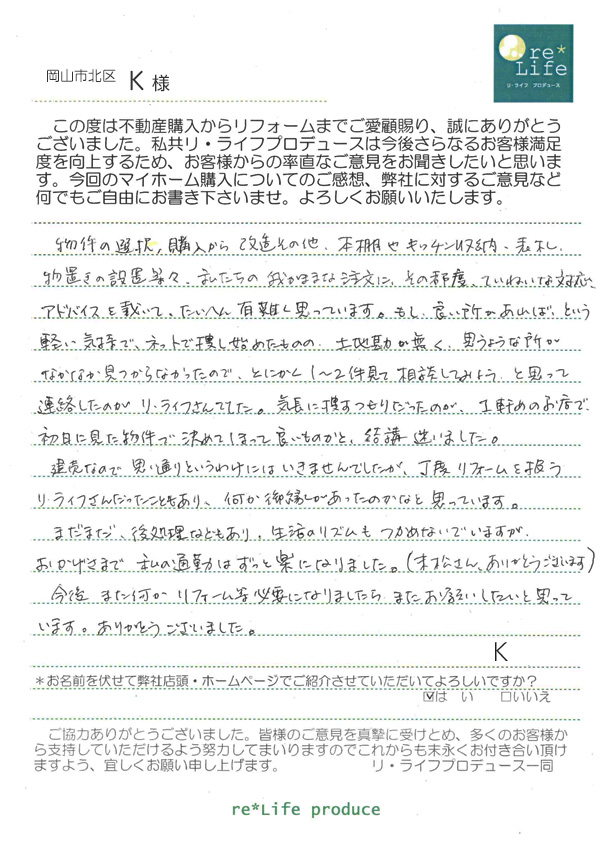 re*
Life
リ・ライフ プロデュース
岡山市北区 K 様
この度は不動産購入からリフォームまでご愛顧賜り、誠にありがとう
ございました。私共リ・ライフプロデュースは今後さらなるお客様満足
度を向上するため、お客様からの率直なご意見をお聞きしたいと思いま
す。今回のマイホーム購入についてのご感想、弊社に対するご意見など
何でもご自由にお書き下さいませ。よろしくお願いいたします。
物件の選択,購入から 改造その他、本棚やキッチン収納、表札、
物置きの設置等々、私たちの我がままな注文に、その都度、ていねいな対応、
アドバイスを戴いて、たいへん有難く思っています。もし、良い所があれば、という
軽い気持で、ネットで捜し始めたものの、土地勘が無く、思うような所が
なかなか見つからなかったので、とにかく1〜2件見て相談してみよう、と思って
連絡したのがリ・ライフさんでした。気長に捜すつもりだったのが、1軒めのお店で、
初日に見た物件で決めてしまって良いものかと、結構迷いました。
建売なので思い通りというわけにはいきませんでしたが、丁度リフォームを扱う
リ・ライフさんだったこともあり、何か御縁があったのかなと思っています。
まだまだ、後処理などもあり、生活のリズムもつかめないでいますが、
おかげさまで私の通勤はずっと楽になりました。(末松さん、ありがとうございます)
今後 また何か リフォーム等必要になりましたら またお願いしたいと思って
います。ありがとうございました。
K
*お名前を伏せて弊社店頭・ホームページでご紹介させていただいてよろしいですか？
☑は い □いいえ
ご協力ありがとうございました。皆様のご意見を真摯に受けとめ、多くのお客様か
ら支持していただけるよう努力してまいりますのでこれからも末永くお付き合い頂け
ますよう、宜しくお願い申し上げます。 リ・ライフプロデュース一同
re*Life produce